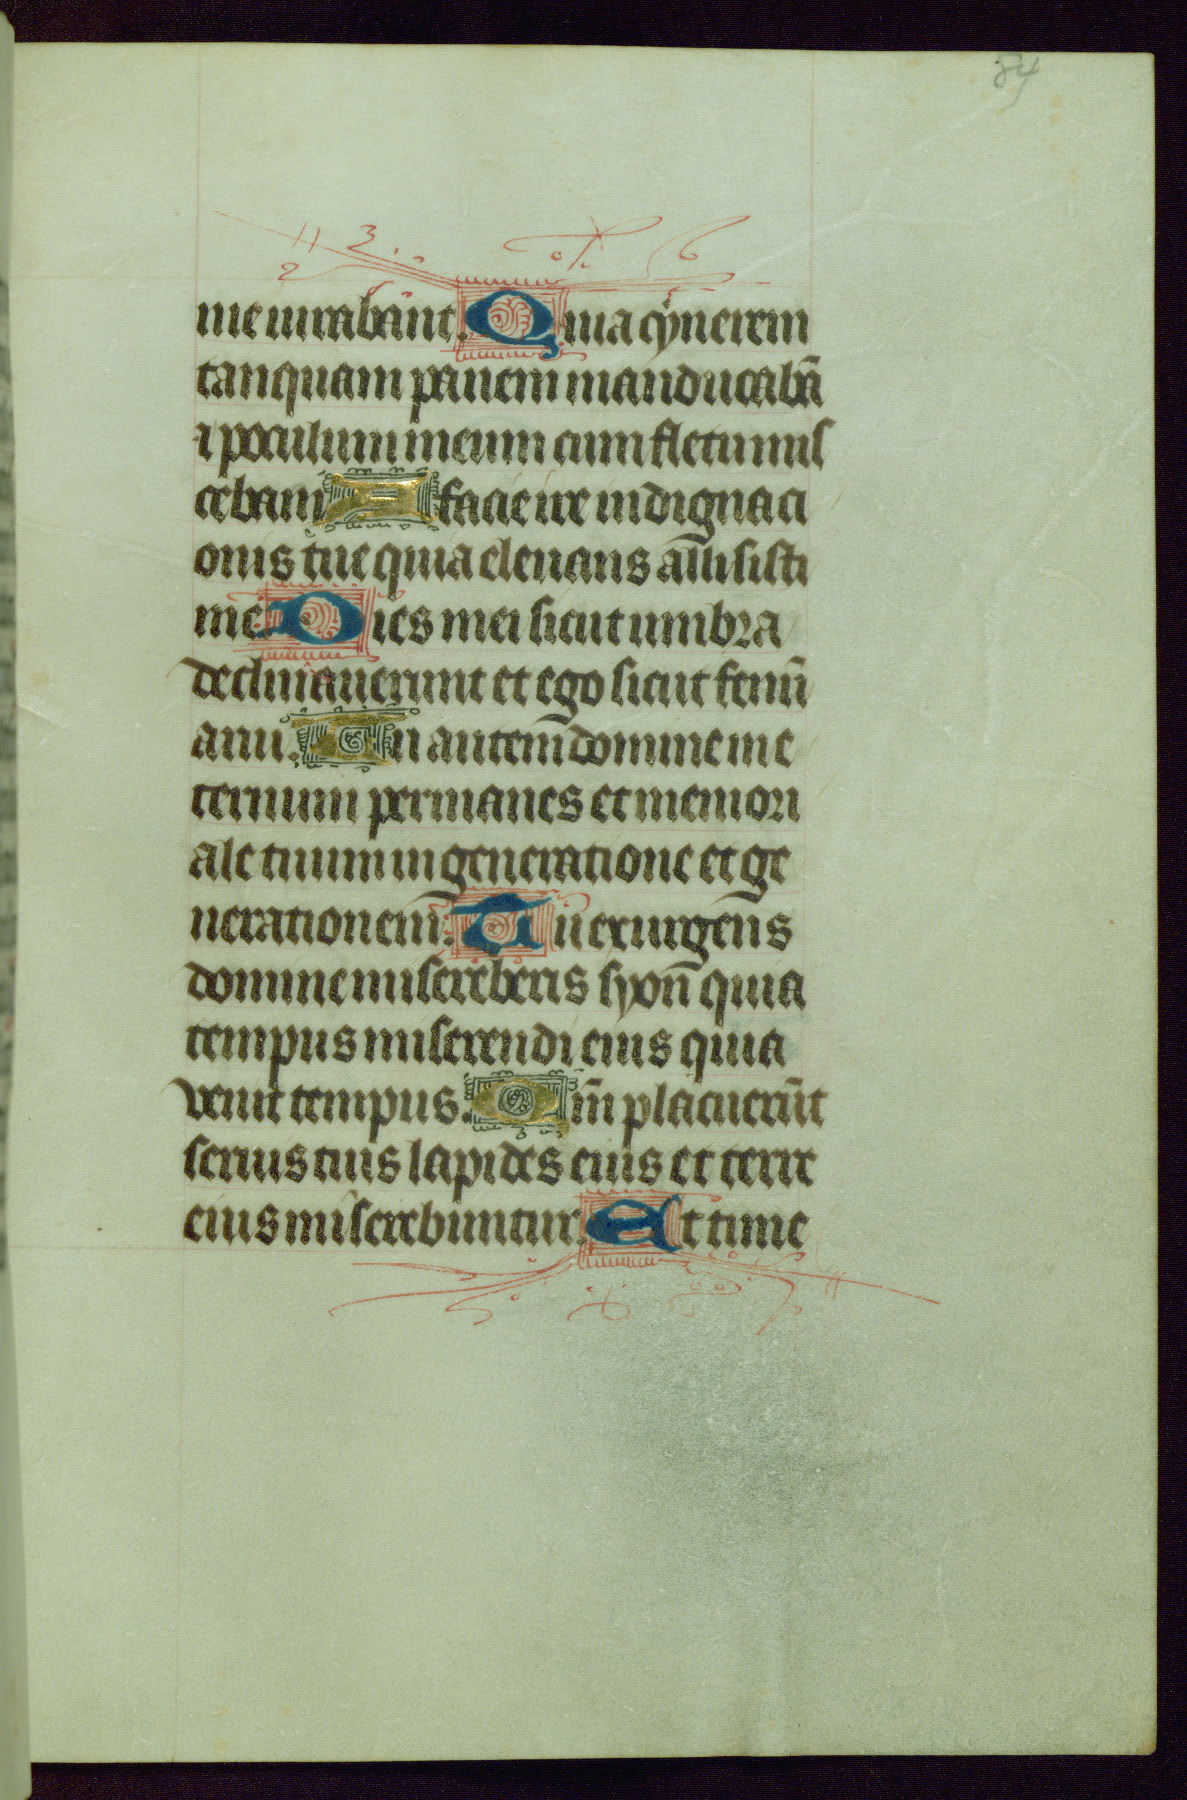 84
me iurabant. Quia cynerem
tanquam panem manducabā
⁊ poculum meum cum fletu mis
cebam A facie ire indignaci
onis tue quia eleuans allisisti
me Dies mei sicut umbra
declinauerunt et ego sicut fenū
arui. Tu autem domine in e
ternum permanes et memori
ale tuum in generatione et ge
nerationem. Tu exurgens
domine misereberis syon quia
tempus miserendi eius quia
venit tempus. Qm̄ placuerūt
seruis tuis lapides eius et terre
eius miserebuntur. Et time